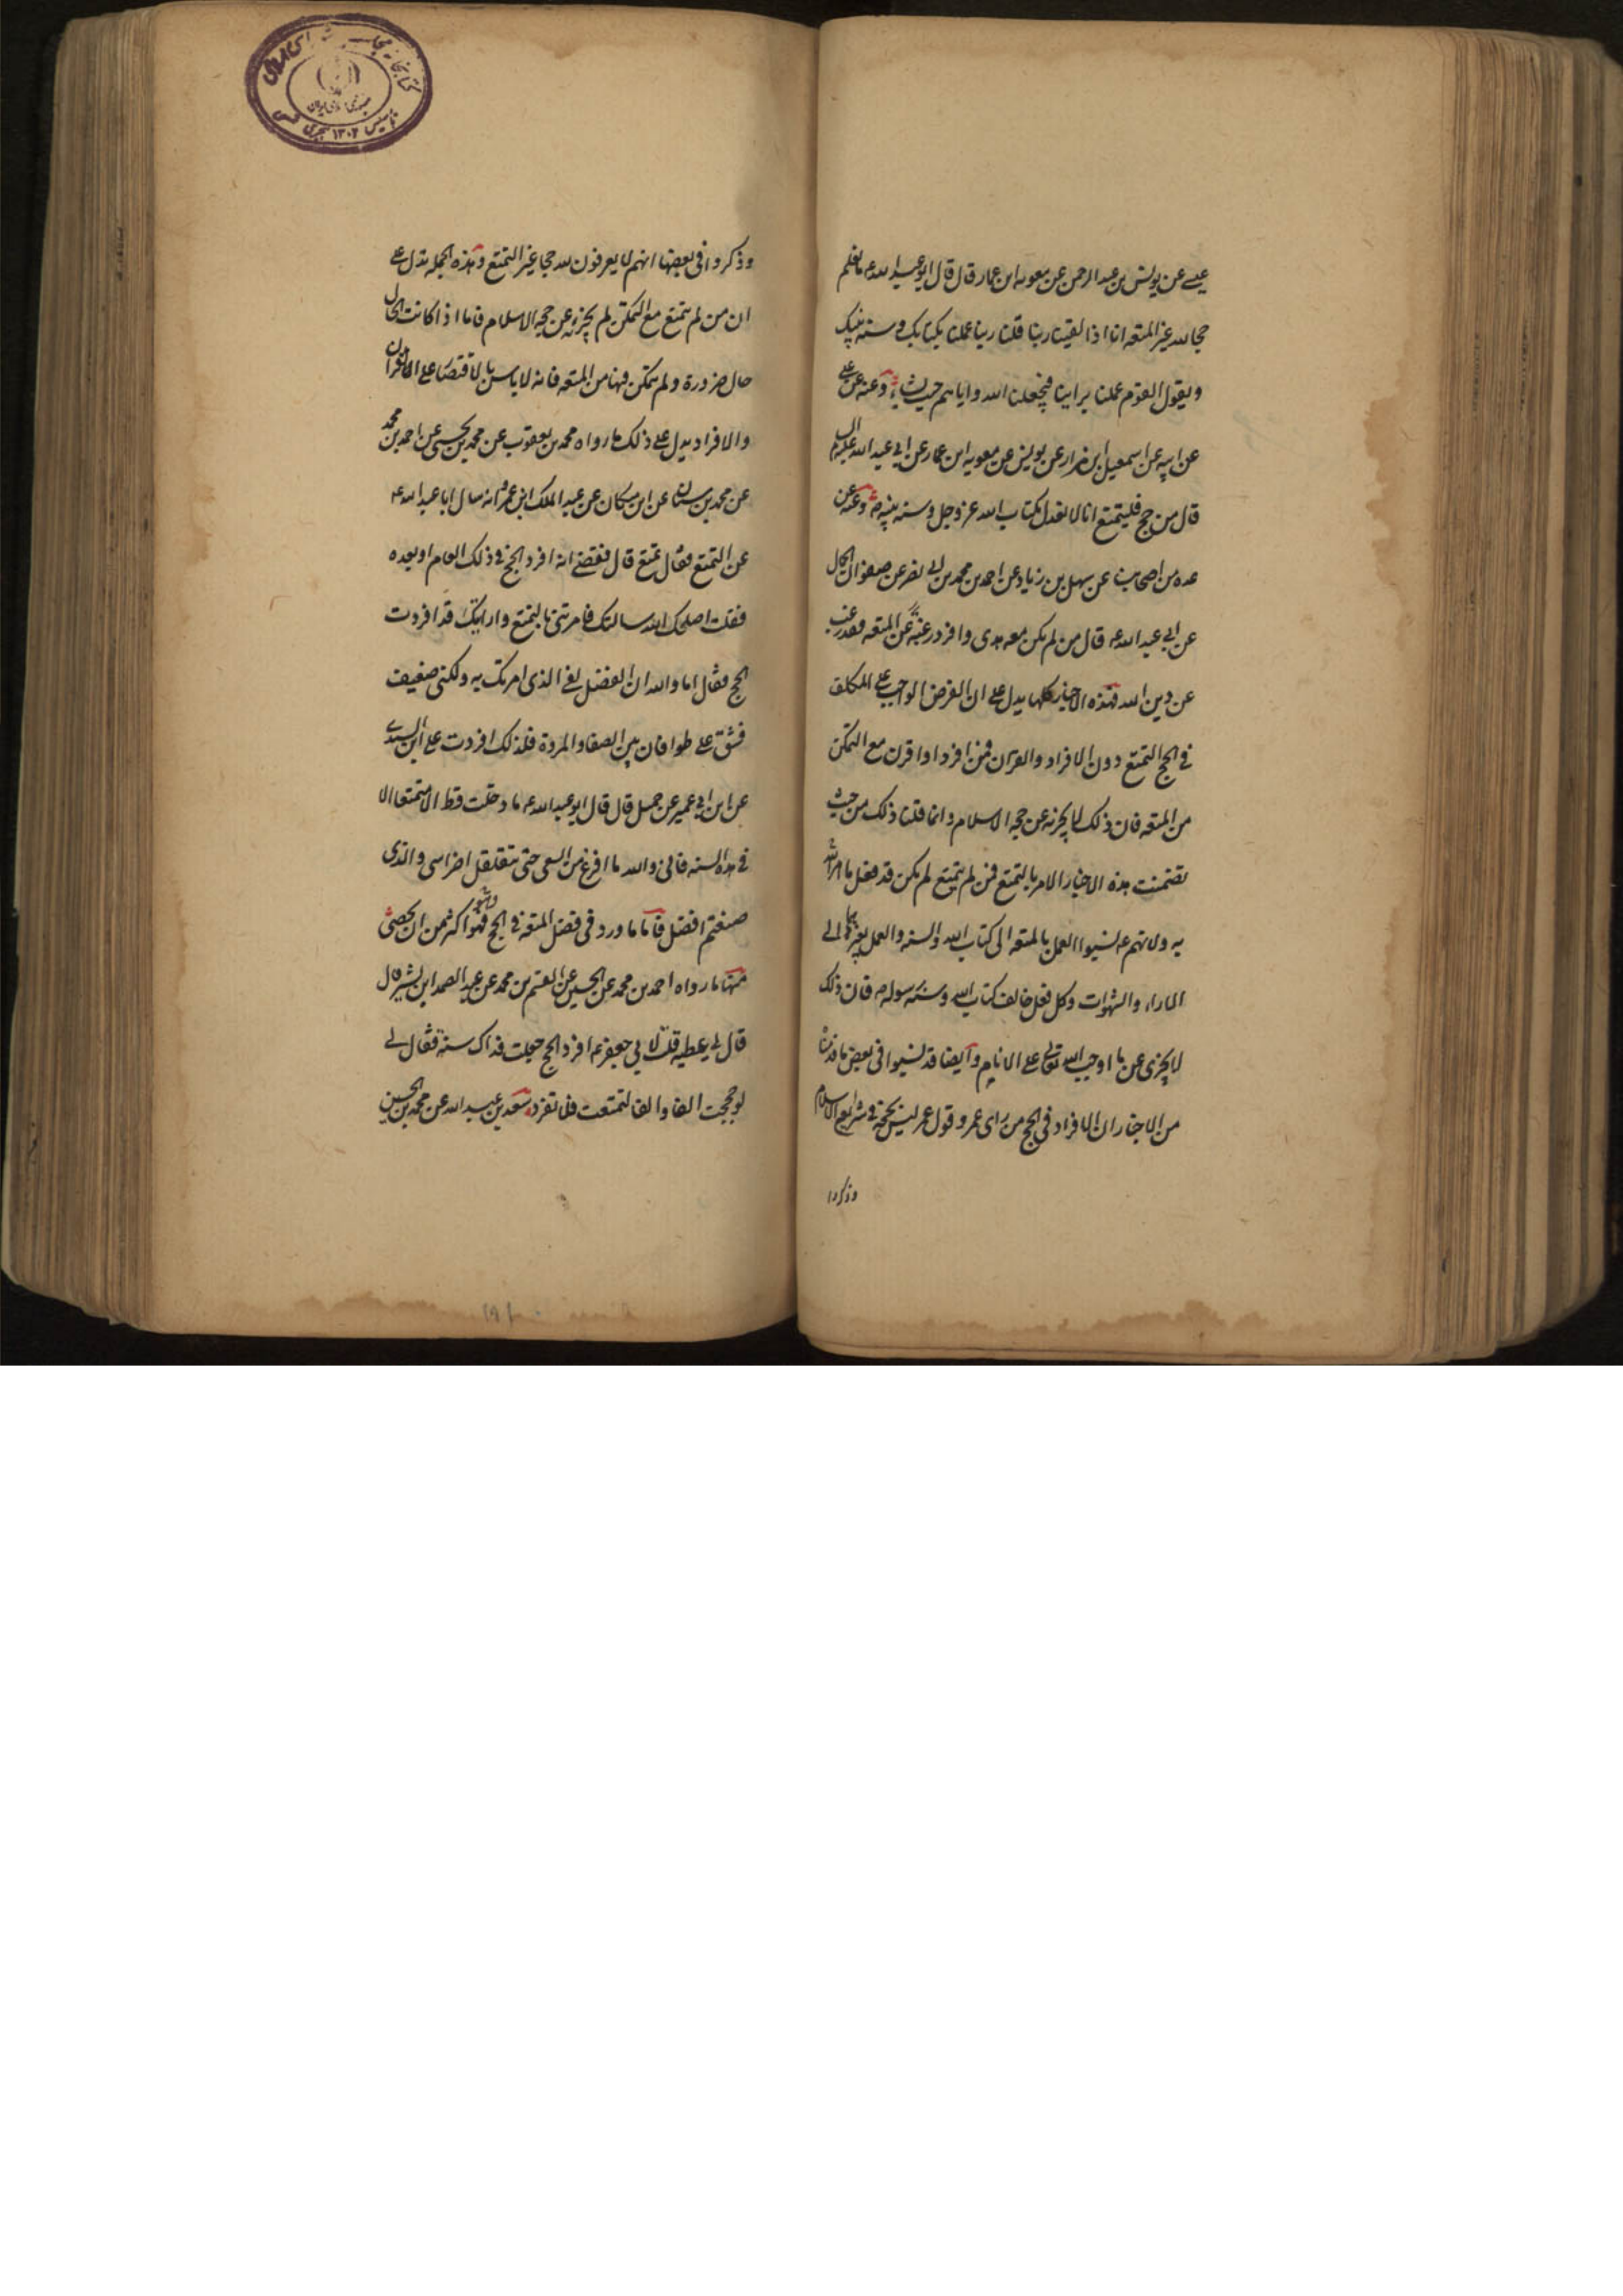 عیسی عن یونس بن عبد الرحمن عن معویه ابن عمار قال قال ابو عبد الله ع ما نعلم
حجا لله غیر المتعه انا اذا لقینا ربنا قلنا ربنا عملنا بکتابک و سنه نبیک
و یقول القوم عملنا براینا فیجعلنا الله و ایاهم حیث یشاء و عنه عن علی
عن ابیه عن اسمعیل ابن مرار عن یونس عن معویه ابن عمار عن ابی عبد الله علیه السلم
قال من حج فلیتمتع انا لا نعدل بکتاب الله عز و جل و سنه نبیه ص و عنه عن
عده من اصحابنا عن سهل بن زیاد عن احمد بن محمد بن ابی نصر عن صفوان الجمال
عن ابی عبد الله ع قال من لم یکن معه هدی و افرد رغبة عن المتعه فقد رغب
عن دین الله فهذه الاخبار کلها یدل علی ان الفرض الواجب علی المکلف
فی الحج التمتع دون الافراد و القران فمن افرد او اقرن مع التمکن
من المتعه فان ذلک لا یجزیه عن حجه الاسلام و انما قلنا ذلک من حیث
تضمنت هذه الاخبار الامر بالتمتع فمن لم یتمتع لم یکن قد فعل ما امر الله
به و لانهم ع نسبوا العمل بالمتعه الی کتاب الله و السنه و العمل بغیرهما الی
الاراء و الشهوات و کل فعل خالف کتاب الله و سنه رسوله ص فان ذلک
لا یجزی عن ما اوجب الله تعالی علی الانام و ایضا قد نسبوا فی بعض ما قدمنا
من الاخبار ان الافراد فی الحج من رای عمر و قول عمر لیس بحجة فی شرایع الاسلام
و ذکروا
و ذکروا فی بعضها انهم لا یعرفون لله حجا غیر التمتع و هذه الجمله تدل علی
ان من لم یتمتع مع التمکن لم یجزیه عن حجه الاسلام فاما اذا کانت الحال
حال ضرورة و لم یتمکن فیها من المتعه فانه لا باس بالاقتصار علی القران
و الافراد یدل علی ذلک ما رواه محمد بن یعقوب عن محمد بن یحیی عن احمد بن محمد
عن محمد بن سنان عن ابن مسکان عن عبد الملک ابن عمرو انه سال ابا عبد الله ع
عن التمتع فقال تمتع قال فقضی انه افرد الحج فی ذلک العام او بعده
فقلت اصلحک الله سالتک فامرتنی بالتمتع و اراک قد افردت
الحج فقال اما و الله ان الفضل لفی الذی امرتک به و لکنی ضعیف
فشق علی طوافان بین الصفا و المروة فلذلک افردت علی ابن السندی
عن ابن ابی عمیر عن جمیل قال قال ابو عبد الله ع ما دخلت قط الا متمتعا الا
فی هذه السنه فانی و الله ما افرغ من السعی حتی یتقلقل اضراسی و الذی
صنعتم افضل فاما ما ورد فی فضل المتعه فی الحج فهو اکثر من ان یحصی
منها ما رواه احمد بن محمد عن الحسین عن القسم بن محمد عن عبد الصمد ابن بشیر قال
قال لی عطیه قلت لابی جعفر ع افرد الحج جعلت فداک سنة فقال لی
لو حججت الفا و الفا لتمتعت فلا تفرد سعد بن عبد الله عن محمد بن الحسین